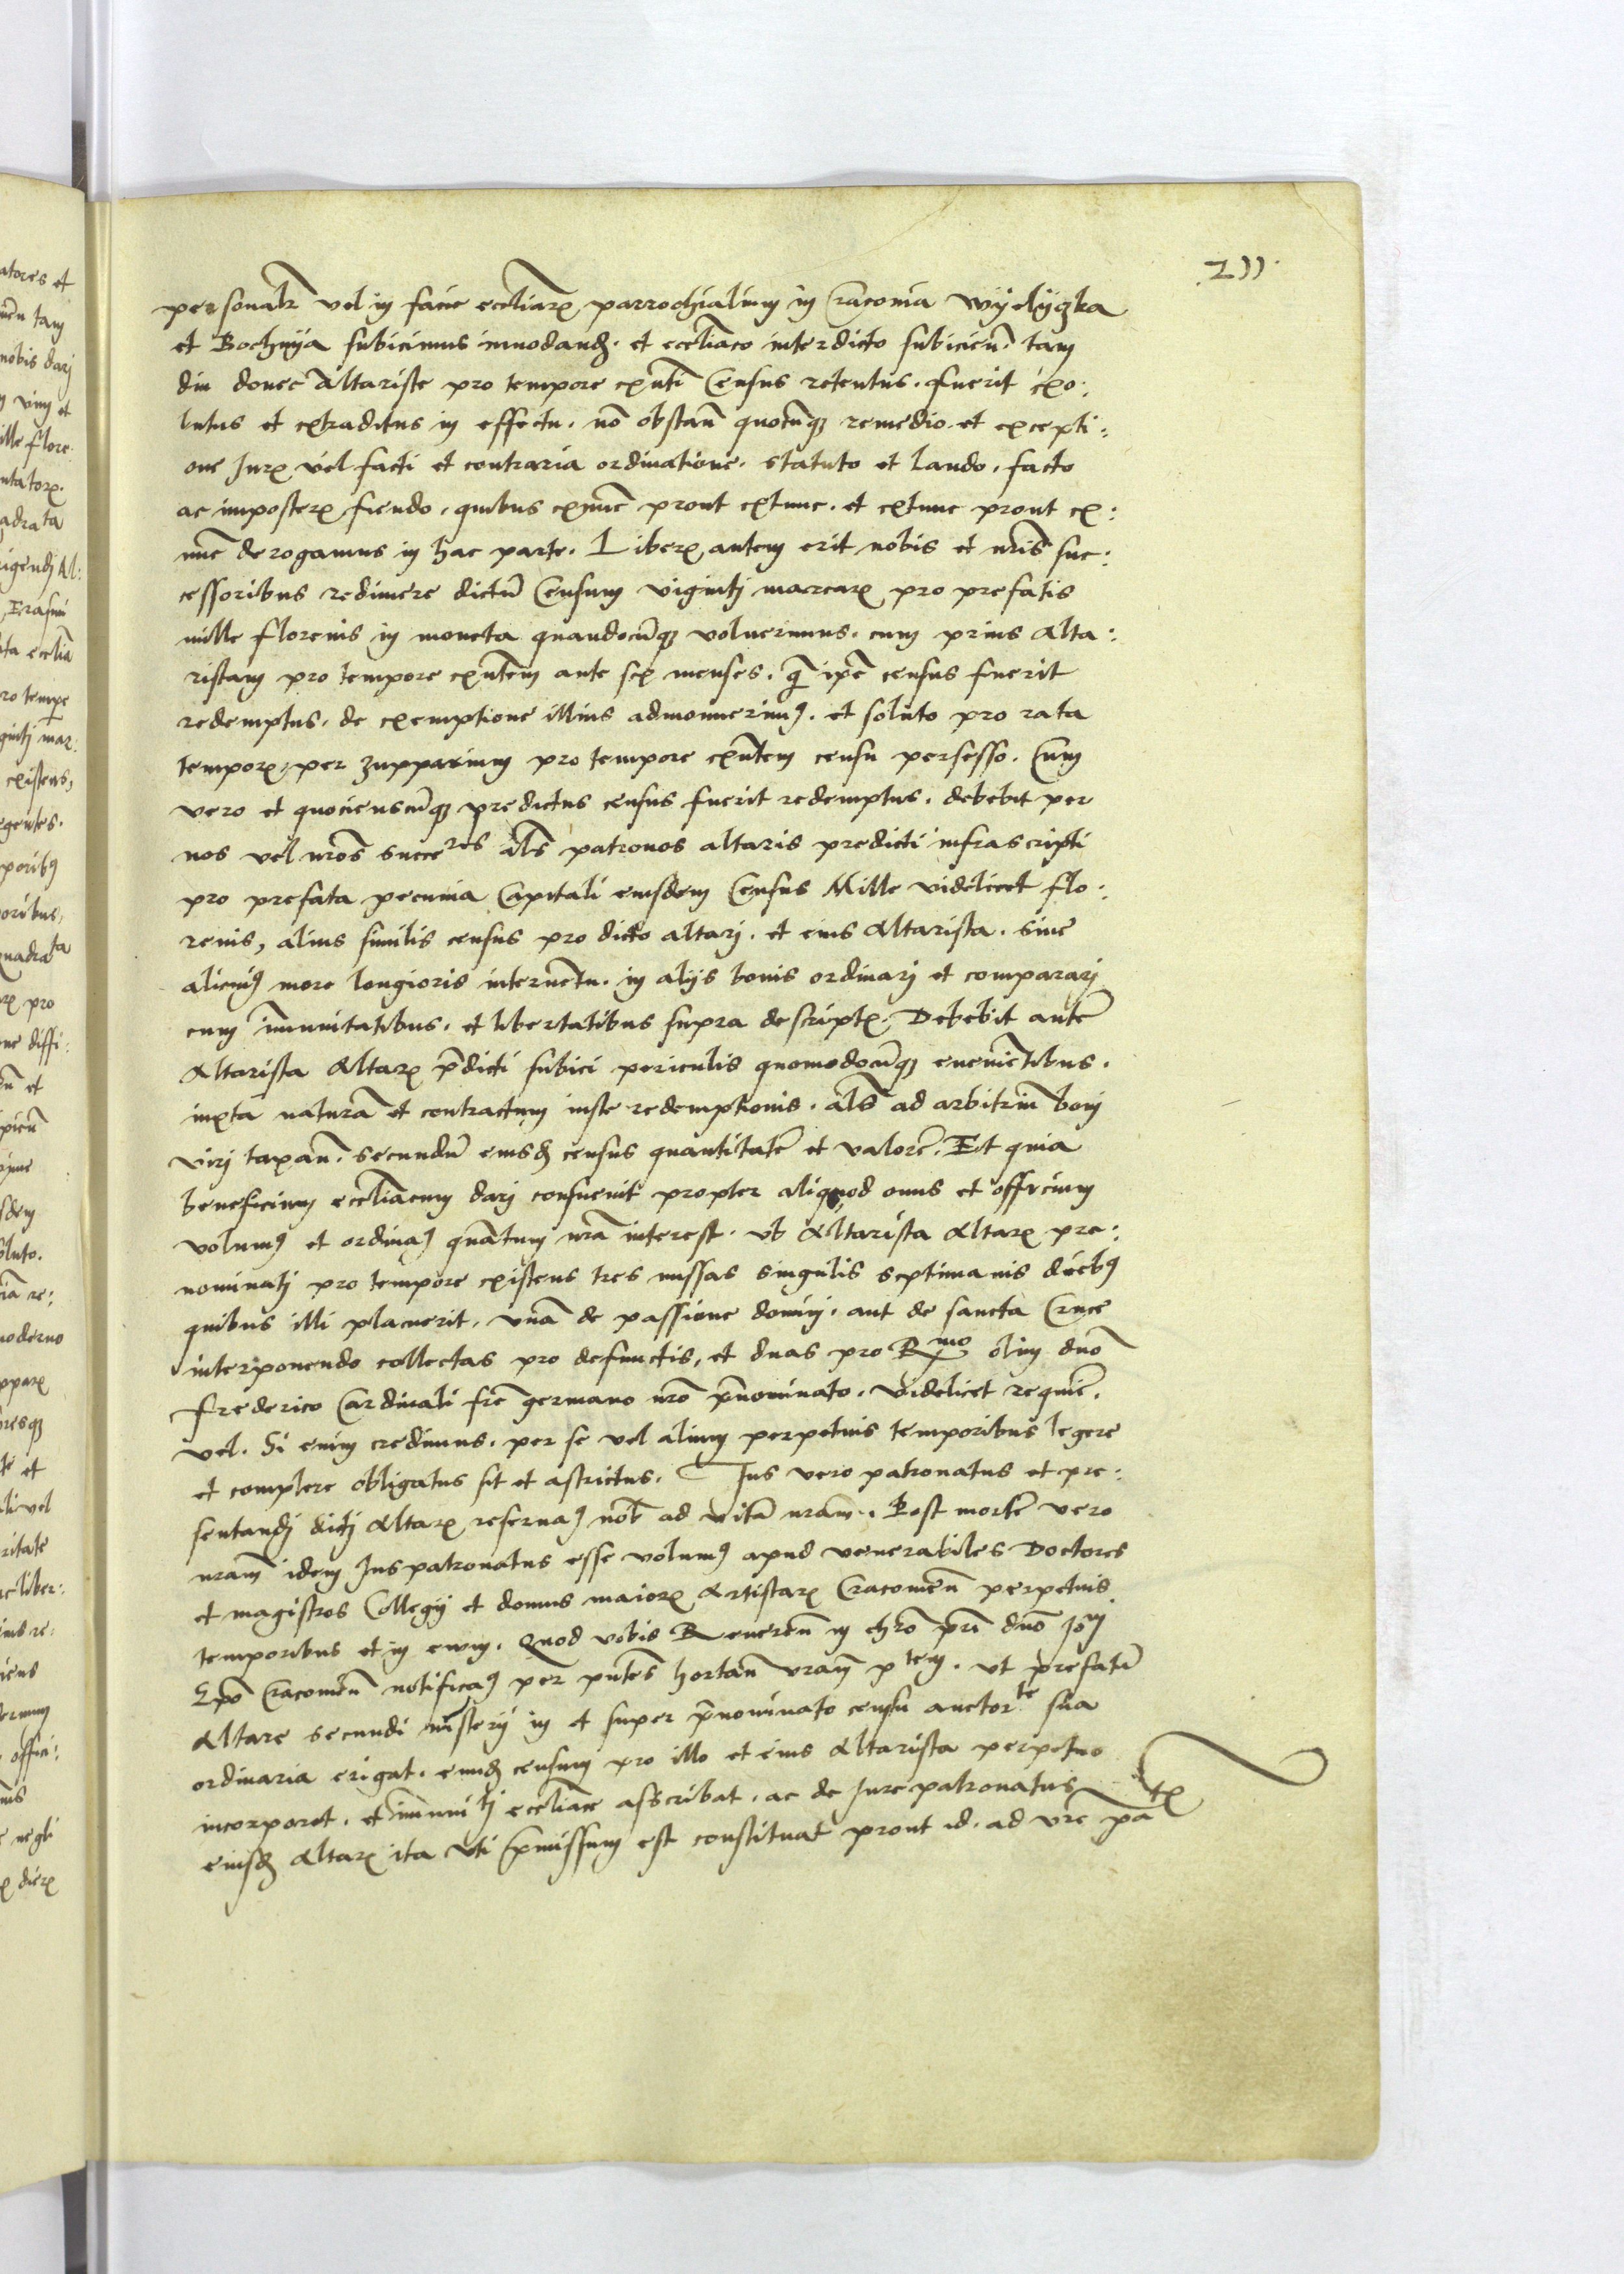 211.
personalr̃ vel in facie eccliarꝫ parrochialium in Cracouia Wyelyczka
et Bochnya subicimus innodandꝫ. et eccliaco interdicto subicieñ. tam
diu donec Altariste pro tempore exñti Census retentus. fuerit exo:
lutus et extraditus in effectu. nõ obstañ quocũqꝫ remedio et excepti:
one Jurꝫ vel facti et contraria ordinatione. statuto et laudo. facto
ac imposterꝫ fiendo. quibus exnunc prout extunc. et extunc prout ex:
nunc derogamus in hac parte. Liberꝫ autem erit nobis et nr̃is suc:
cessoribus redimere dictũ Censum viginti marcarꝫ pro prefatis
mille florenis in moneta quandocũqꝫ voluerimus. cum prius Alta:
ristam pro tempore exñtem ante sex menses. q̃ ip̃e census fuerit
redemptus. de exemptione illius admonuerimꝰ. et soluto pro rata
temporꝫ per zupparium pro tempore exñtem censu persesso. Cum
vero et quocienscũqꝫ predictus census fuerit redemptus. debebit per
nos vel nr̃os succeres als̃ patronos altaris predicti infrascripti
pro prefata pecunia Capitali eiusdem Census Mille videlicet flo:
renis, alius similis census pro dicto altari. et eius Altarista. sine
alicuiꝰ more longioris interuẽtu. in alijs bonis ordinari et comparari
cum im̃unitatibus. et libertatibus supra descriptꝫ. Debebit autẽ
Altarista Altarꝫ p̃dicti subici periculis quomodocũqꝫ eueniẽtibus.
iuxta naturã et contractum iuste redemptionis. als̃ ad arbitriũ boni
viri taxañ. secundũ eiusdꝫ census quantitatẽ et valorẽ. Et quia
beneficium eccliacum dari consueuit propter aliquod onus et officium
volumꝰ et ordinaꝰ quãtum nr̃a interest. vt Altarista Altarꝫ pre:
nominati pro tempore existens tres missas singulis septimanis diebꝰ
quibus illi placuerit, vnã de passione domini. aut de sancta Cruce
interponendo collectas pro defunctis, et duas pro Rmo olim dno
Frederico Cardinali fr̃e germano nr̃o p̃nominato. videlicet requiẽ.
vel. Si enim credimus. per se vel alium perpetuis temporibus legere
et complere obligatus sit et astrictus. Jus vero patronatus et pre:
sentandi dicti Altarꝫ reseruaꝰ nob̃ ad vitã nram. Post mortẽ vero
nram idem Jus patronatus esse volumꝰ apud venerabiles Doctores
et magistros Collegij et domus maiorꝫ Artistarꝫ Cracouieñ perpetuis
temporibus et in ewm. Quod vobis Reuereñ in chr̃o pr̃i dno Jo
Ep̃o Cracouieñ notificaꝰ per pñtes hortañ vram ptem. vt prefatũ
Altare secundi misterij in et super p̃nominato censu auctorte sua
ordinaria erigat. eundꝫ censum pro illo et eius Altarista perpetuo
incorporet. et im̃unitti eccliace asscribat. ac de Jure patronatus
eiusdꝫ Altarꝫ ita vti p̃missum est constituat prout id. ad vr̃e patꝫ